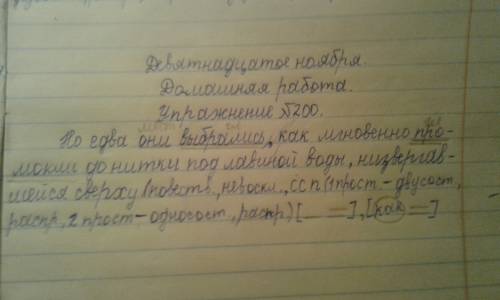 Девятнадцатое ноября.
Домашняя работа.
Упражнение №200.
Но едва они выбрались, как мгновенно про-
мокли до нитки под лавиной воды, низвергав-
шейся сверху (повеств., невоскл., ссп (1 прост – двусост,
распр, 2 прост – односост, распр,) [ ], [как ]